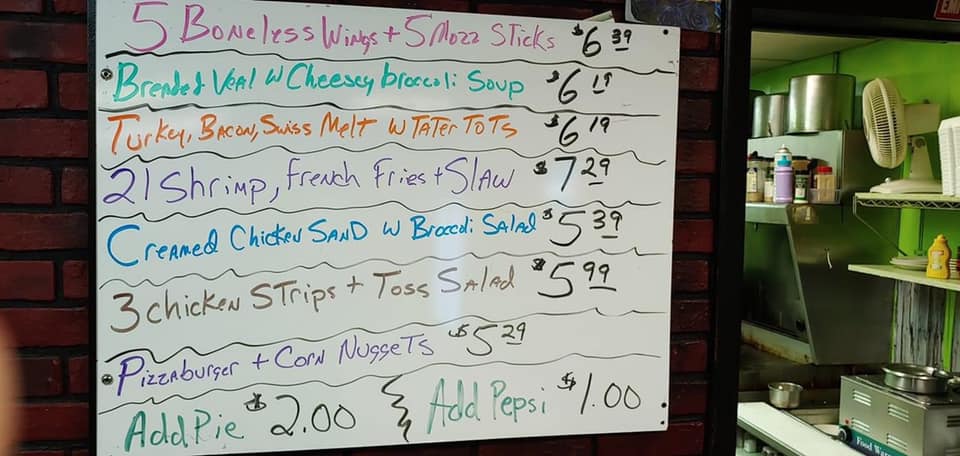 5 Boneless Wings + 5 Mozz Sticks $6 39
Breaded Veal w Cheesey broccoli Soup $6 19
Turkey, Bacon, Swiss Melt w Tater Tots $6 19
21 Shrimp, French Fries + Slaw $7 29
Creamed Chicken Sand w Broccoli Salad $5 39
3 chicken Strips + Toss Salad $5 99
Pizzaburger + Corn Nuggets $5 29
Add Pie $2.00 Add Pepsi $1.00